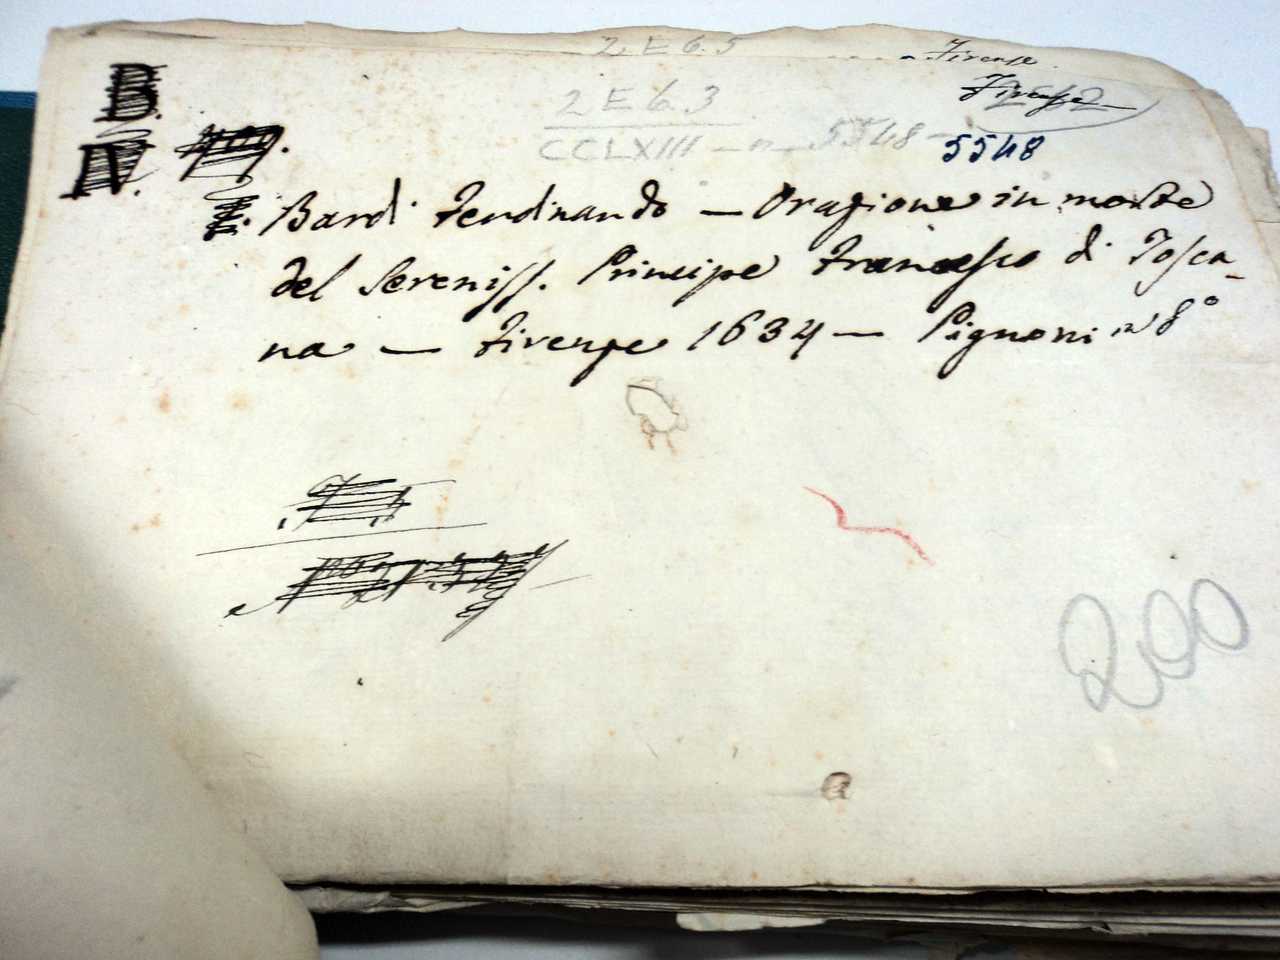 2 E 6. 5
Firense
2 E 6. 3
Firense
CCLXIII - n 5548
5548
B.
IV.
Bardi Ferdinando — Orazione in morte
del Sereniss. Principe Francesco di Tosca-
na — Firenze 1634 — Pignoni in 8°
200